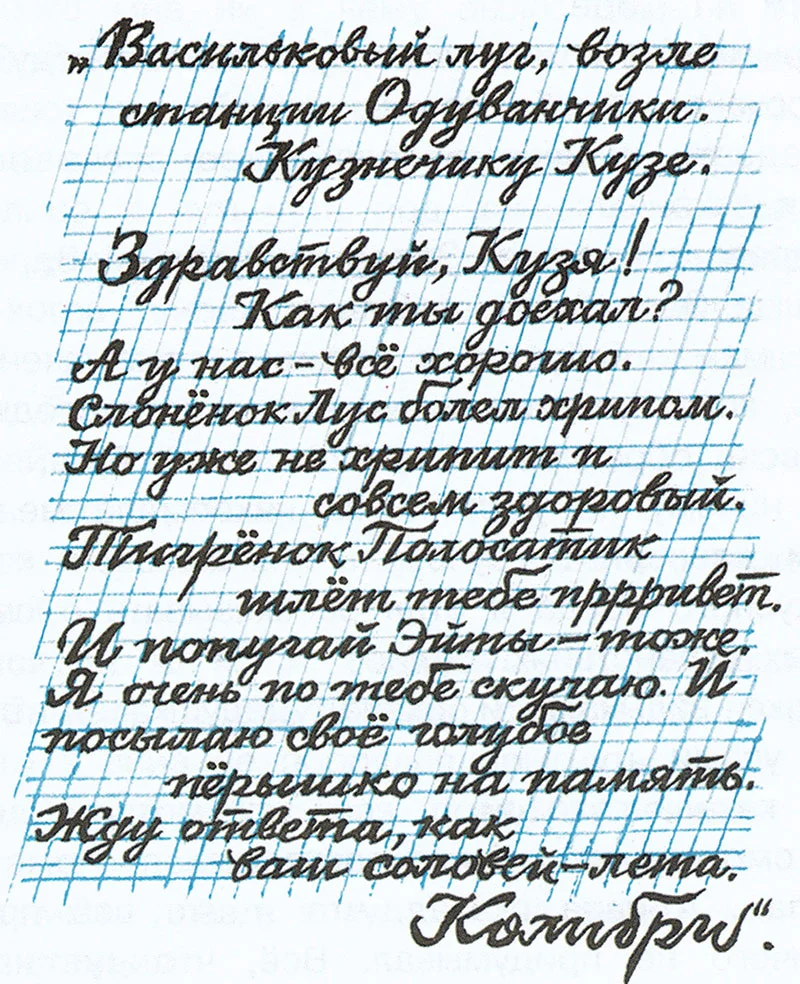 „Васильковый луг, возле
станции Одуванчики.
Кузнечику Кузе.
Здравствуй, Кузя!
Как ты доехал?
А у нас – всё хорошо.
Слонёнок Лус болел хрипом.
Но уже не хрипит и
совсем здоровый.
Тигрёнок Полосатик
шлёт тебе прррривет.
И попугай Эйты – тоже.
Я очень по тебе скучаю. И
посылаю своё голубое
пёрышко на память.
Жду ответа, как
ваш соловей – лета.
Колибри“.